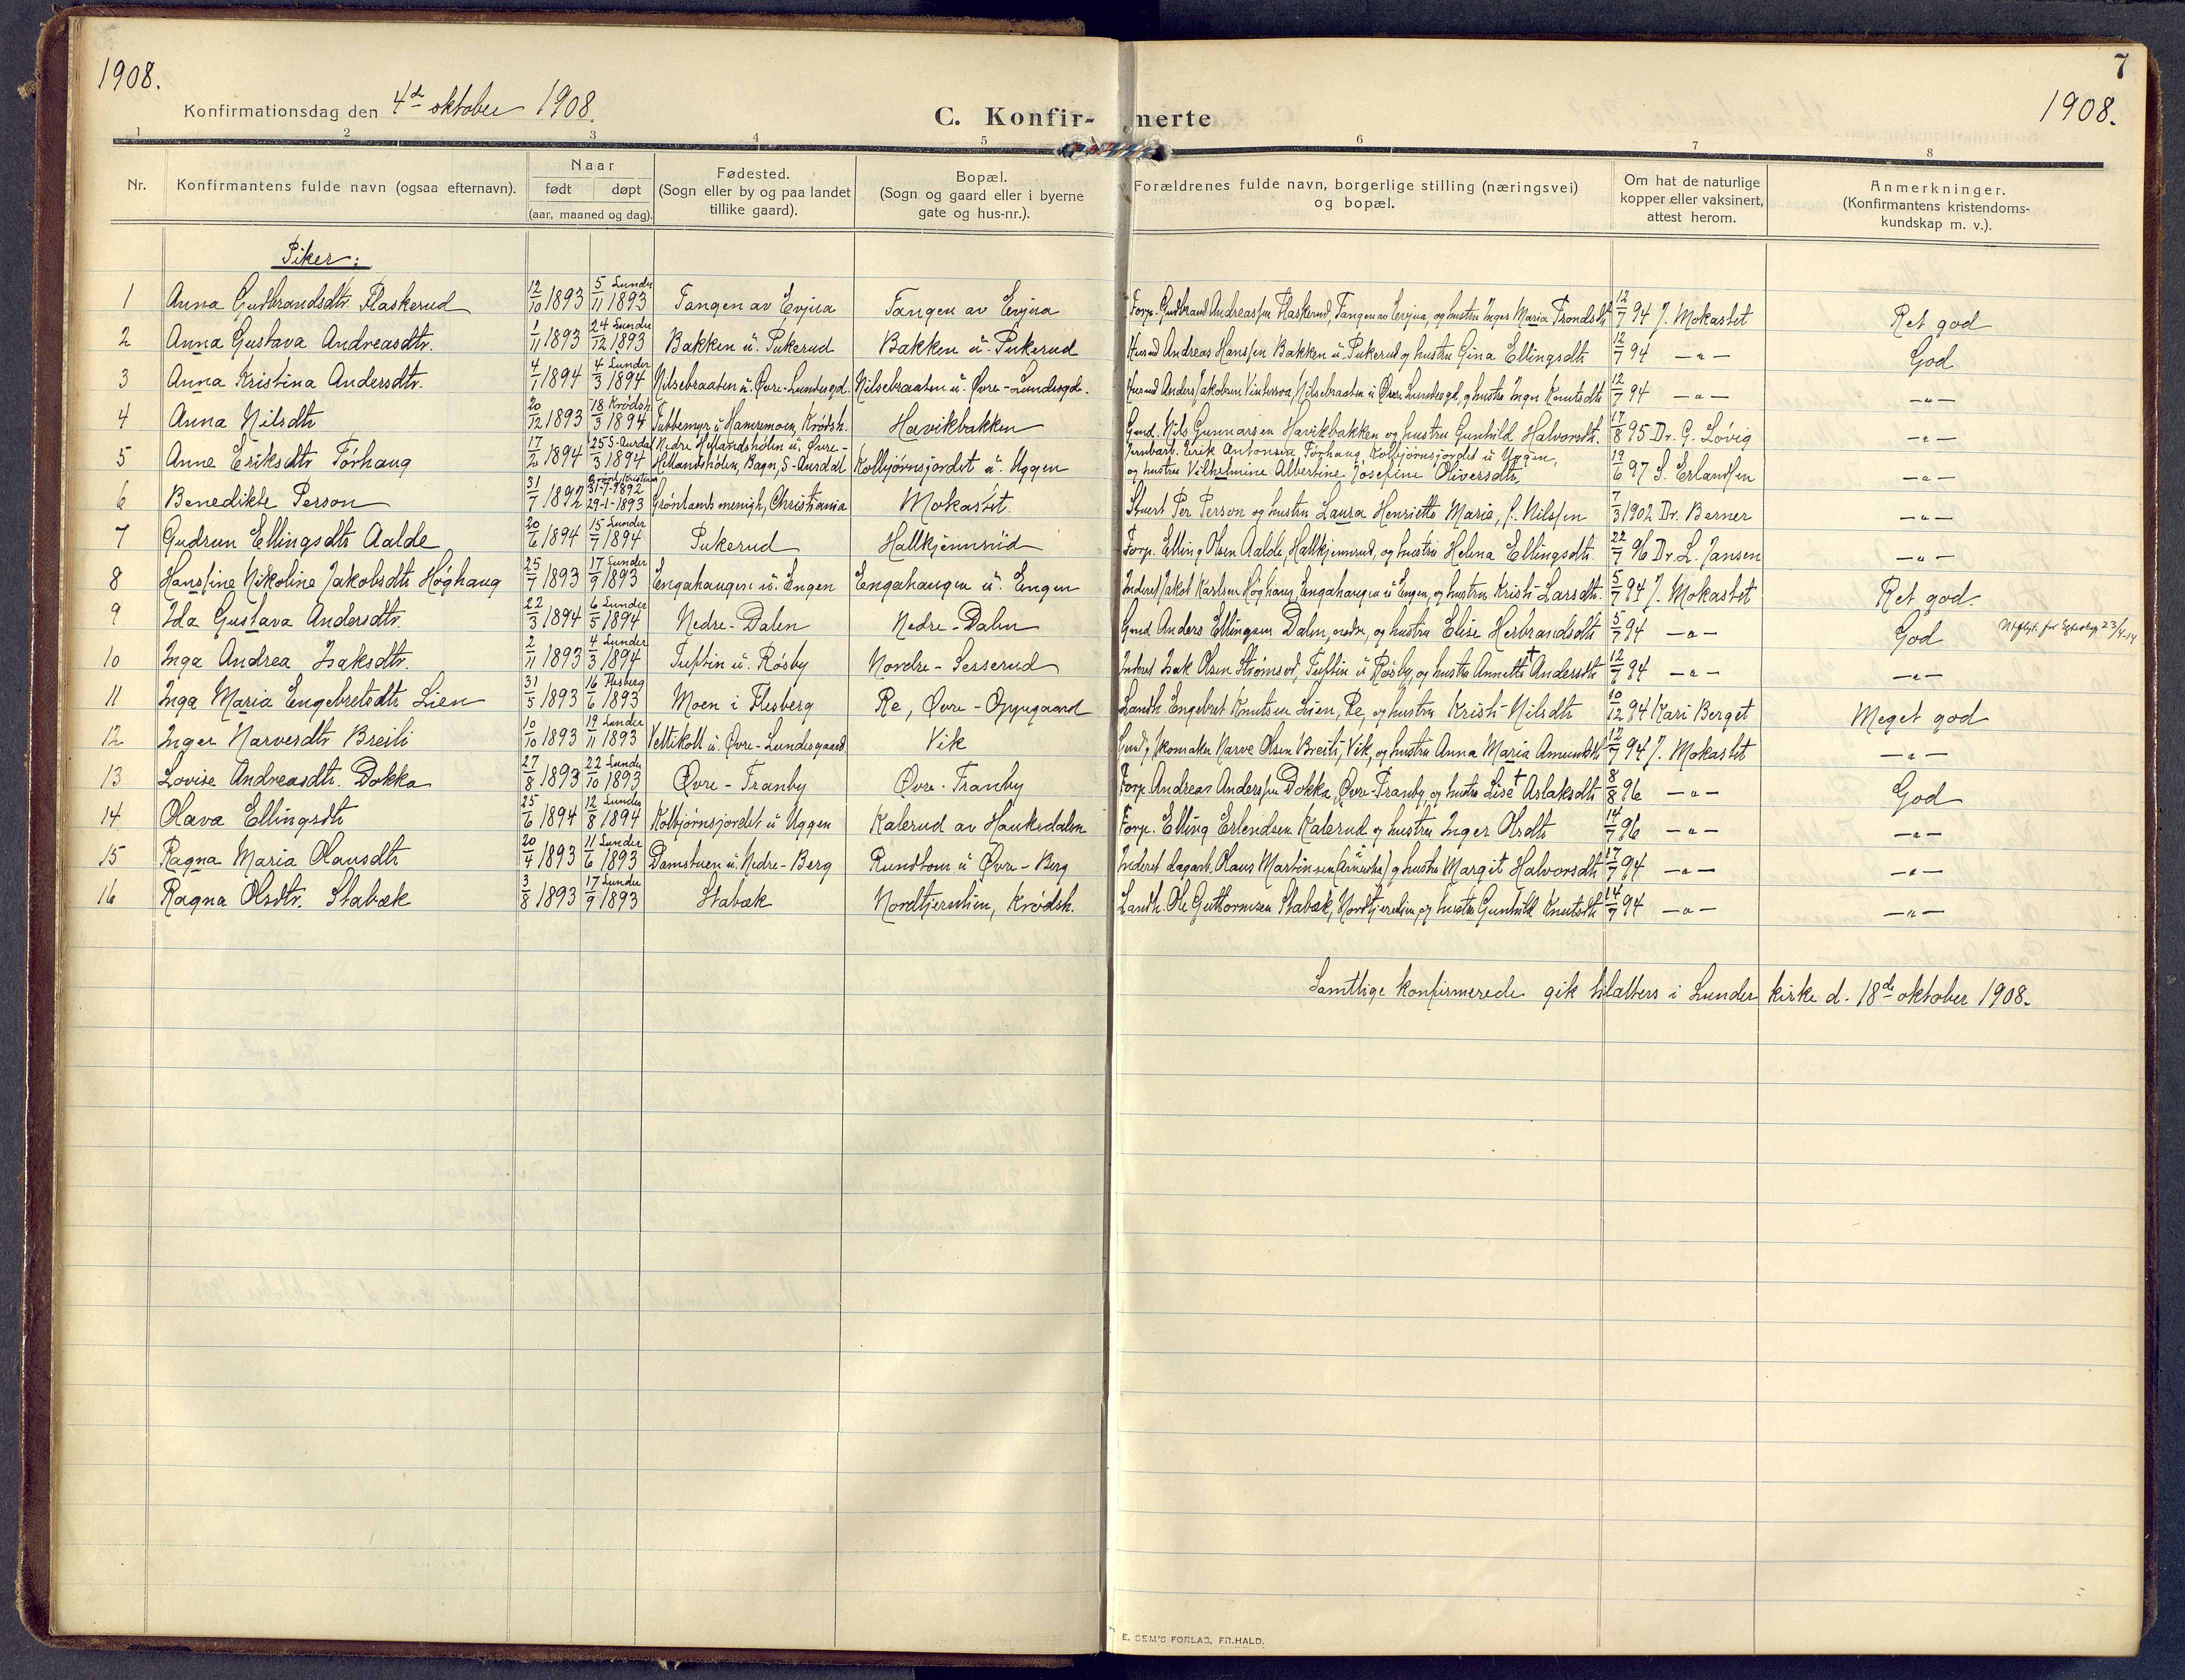 1908.
7
1908.
Konfirmationsdag den 4de oktober 1908.
C. Konfir- merte
1 2 3 4 5 6 7 8
Nr.
Konfirmantens fulde navn (ogsaa efternavn).
Naar
født døpt
(aar, maaned og dag).
Fødested.
(Sogn eller by og paa landet
tillike gaard).
Bopæl.
(Sogn og gaard eller i byerne
gate og hus-nr.).
Forældrenes fulde navn, borgerlige stilling (næringsvei)
og bopæl.
Om hat de naturlige
kopper eller vaksinert,
attest herom.
Anmerkninger.
(Konfirmantens kristendoms-
kundskap m. v.).
Piker:
1 Anna Gudbrandsdtr. Flaskerud 12/10 1893 5/11 Lunder 1893 Tangen av Evjua Tangen av Evjua Forp. Gudbrand Andreassen Flaskerud, Tangen av Evjua, og hustru Inger Maria Trondsdtr 12/7 94 J. Mokastet Ret god
2 Anna Gustava Andreasdtr. 1/11 1893 24/12 Lunder 1893 Bakken u. Pukerud Bakken u. Pukerud Husmd Andreas Hanssen Bakken u. Pukerud og hustru Gina Ellingsdtr 12/7 94 —"— God
3 Anna Kristina Andersdtr. 4/1 1894 4/3 Lunder 1894 Nilsebraaten u. Øvre-Lundesgd. Nilsebraaten u. Øvre-Lundesgd. Husmd Anders Jakobsen Nilsebraaten u Øvre Lundesgd, og hustru Inger Knutsdtr 12/7 94 —"— —"—
4 Anna Nilsdtr 20/12 1893 18/3 Krødsh. 1894 Tubbemyr u Hamremoen, Krødsh. Høvikbakken Gmd. Nils Gunnarsen Høvikbakken og hustru Gunhild Halvorsdtr. 17/8 95 Dr. G. Løvig —"—
5 Anne Eriksdtr Tørhaug 17/2 1894 25/3 S-Aurdal 1894 Nedre Hellandshølen u. Øvre-
Hellandshølen, Bagn, S-Aurdal Kolbjørnsjordet u. Uggen Jernbarb. Erik Antonsen Tørhaug, Kolbjørnsjordet u Uggen,
og hustru Vilhelmine Albertine Josefine Oliversdtr. 19/6 97 S. Erlandsen —"—
6 Benedikte Person 31/7 1892 31-7-1892
29-1-1893 Grønlands menigh, Christiania Mokastet. Stuert Per Person og hustru Laura Henriette Marie, f. Nilssen 7/3 1902 Dr. Berner —"—
7 Gudrun Ellingsdtr Aalde 20/6 1894 15/7 Lunder 1894 Pukerud Hallkjennrud Forp. Elling Olsen Aalde, Hallkjennrud, og hustru Helena Ellingsdtr. 22/7 96 Dr. L. Jansen —"—
8 Hanssine Nikoline Jakobsdtr Høghaug 25/7 1893 17/9 Lunder 1893 Engahaugen u. Engen Engahaugen u. Engen Inderst Jakob Karlsen Høghaug, Engahaugen u Engen, og hustru Kristi Larsdtr. 5/7 94 J. Mokastet Ret god.
9 Ida Gustava Andersdtr. 22/3 1894 6/5 Lunder 1894 Nedre-Dalen Nedre-Dalen Gmd Anders Ellingsen Dalen, nedre, og hustru Elise Herbrandsdtr 5/7 94 —"— God 23/4-14
10 Inga Andrea Isaksdtr. 2/11 1893 4/3 Lunder 1894 Tuftin u. Røsby Nordre-Sesserud Inderst Isak Olsen Strømsod, Tuftin u Røsby, og hustru Annette† Andersdtr 12/7 94 —"— —"—
11 Inga Maria Engebretsdtr Lien 31/5 1893 16/6 Flesberg 1893 Moen i Flesberg Re, Øvre-Oppegaard Landh. Engebret Knutsen Lien, Re, og hustru Kristi Nilsdtr 10/12 94 Kari Berget Meget god
12 Inger Narvesdtr Breili 10/10 1893 19/11 Lunder 1893 Veltikolt u. Øvre-Lundesgaard Vik Gmd og skomaker Narve Olsen Breili, Vik, og hustru Anna Maria Amundsdtr 12/7 94 J. Mokastet —"—
13 Lovise Andreasdtr. Dokka 27/8 1893 22/10 Lunder 1893 Øvre-Tranby Øvre-Tranby Forp. Andreas Anderssen Dokka, Øvre-Tranby, og hustru Lise† Aslaksdtr 8/8 96 —"— God
14 Olava Ellingsdtr 25/6 1894 12/8 Lunder 1894 Kolbjørnsjordet u Uggen Kalerud av Haukedalen Forp. Elling Erlendsen Kalerud og hustru Inger Olsdtr 14/7 96 —"— —"—
15 Ragna Maria Olausdtr 20/4 1893 11/6 Lunder 1893 Damstuen u. Nedre-Berg Rundtom u Øvre-Berg Inderst dagarb. Olaus Martinsen og hustru Margit Halvorsdtr 17/7 94 —"— —"—
16 Ragna Olsdtr. Stabæk 3/8 1893 17/9 Lunder 1893 Stabæk Nordtjernlien, Krødsh. Landh. Ole Guttormsen Stabæk, Nordtjernlien, og hustru Gunhild Knutsdtr 14/7 94 —"— —"—
Samtlige konfirmerede gik tilalters i Lunder kirke d. 18de oktober 1908.
E. SEM'S FORLAG, FR.HALD.